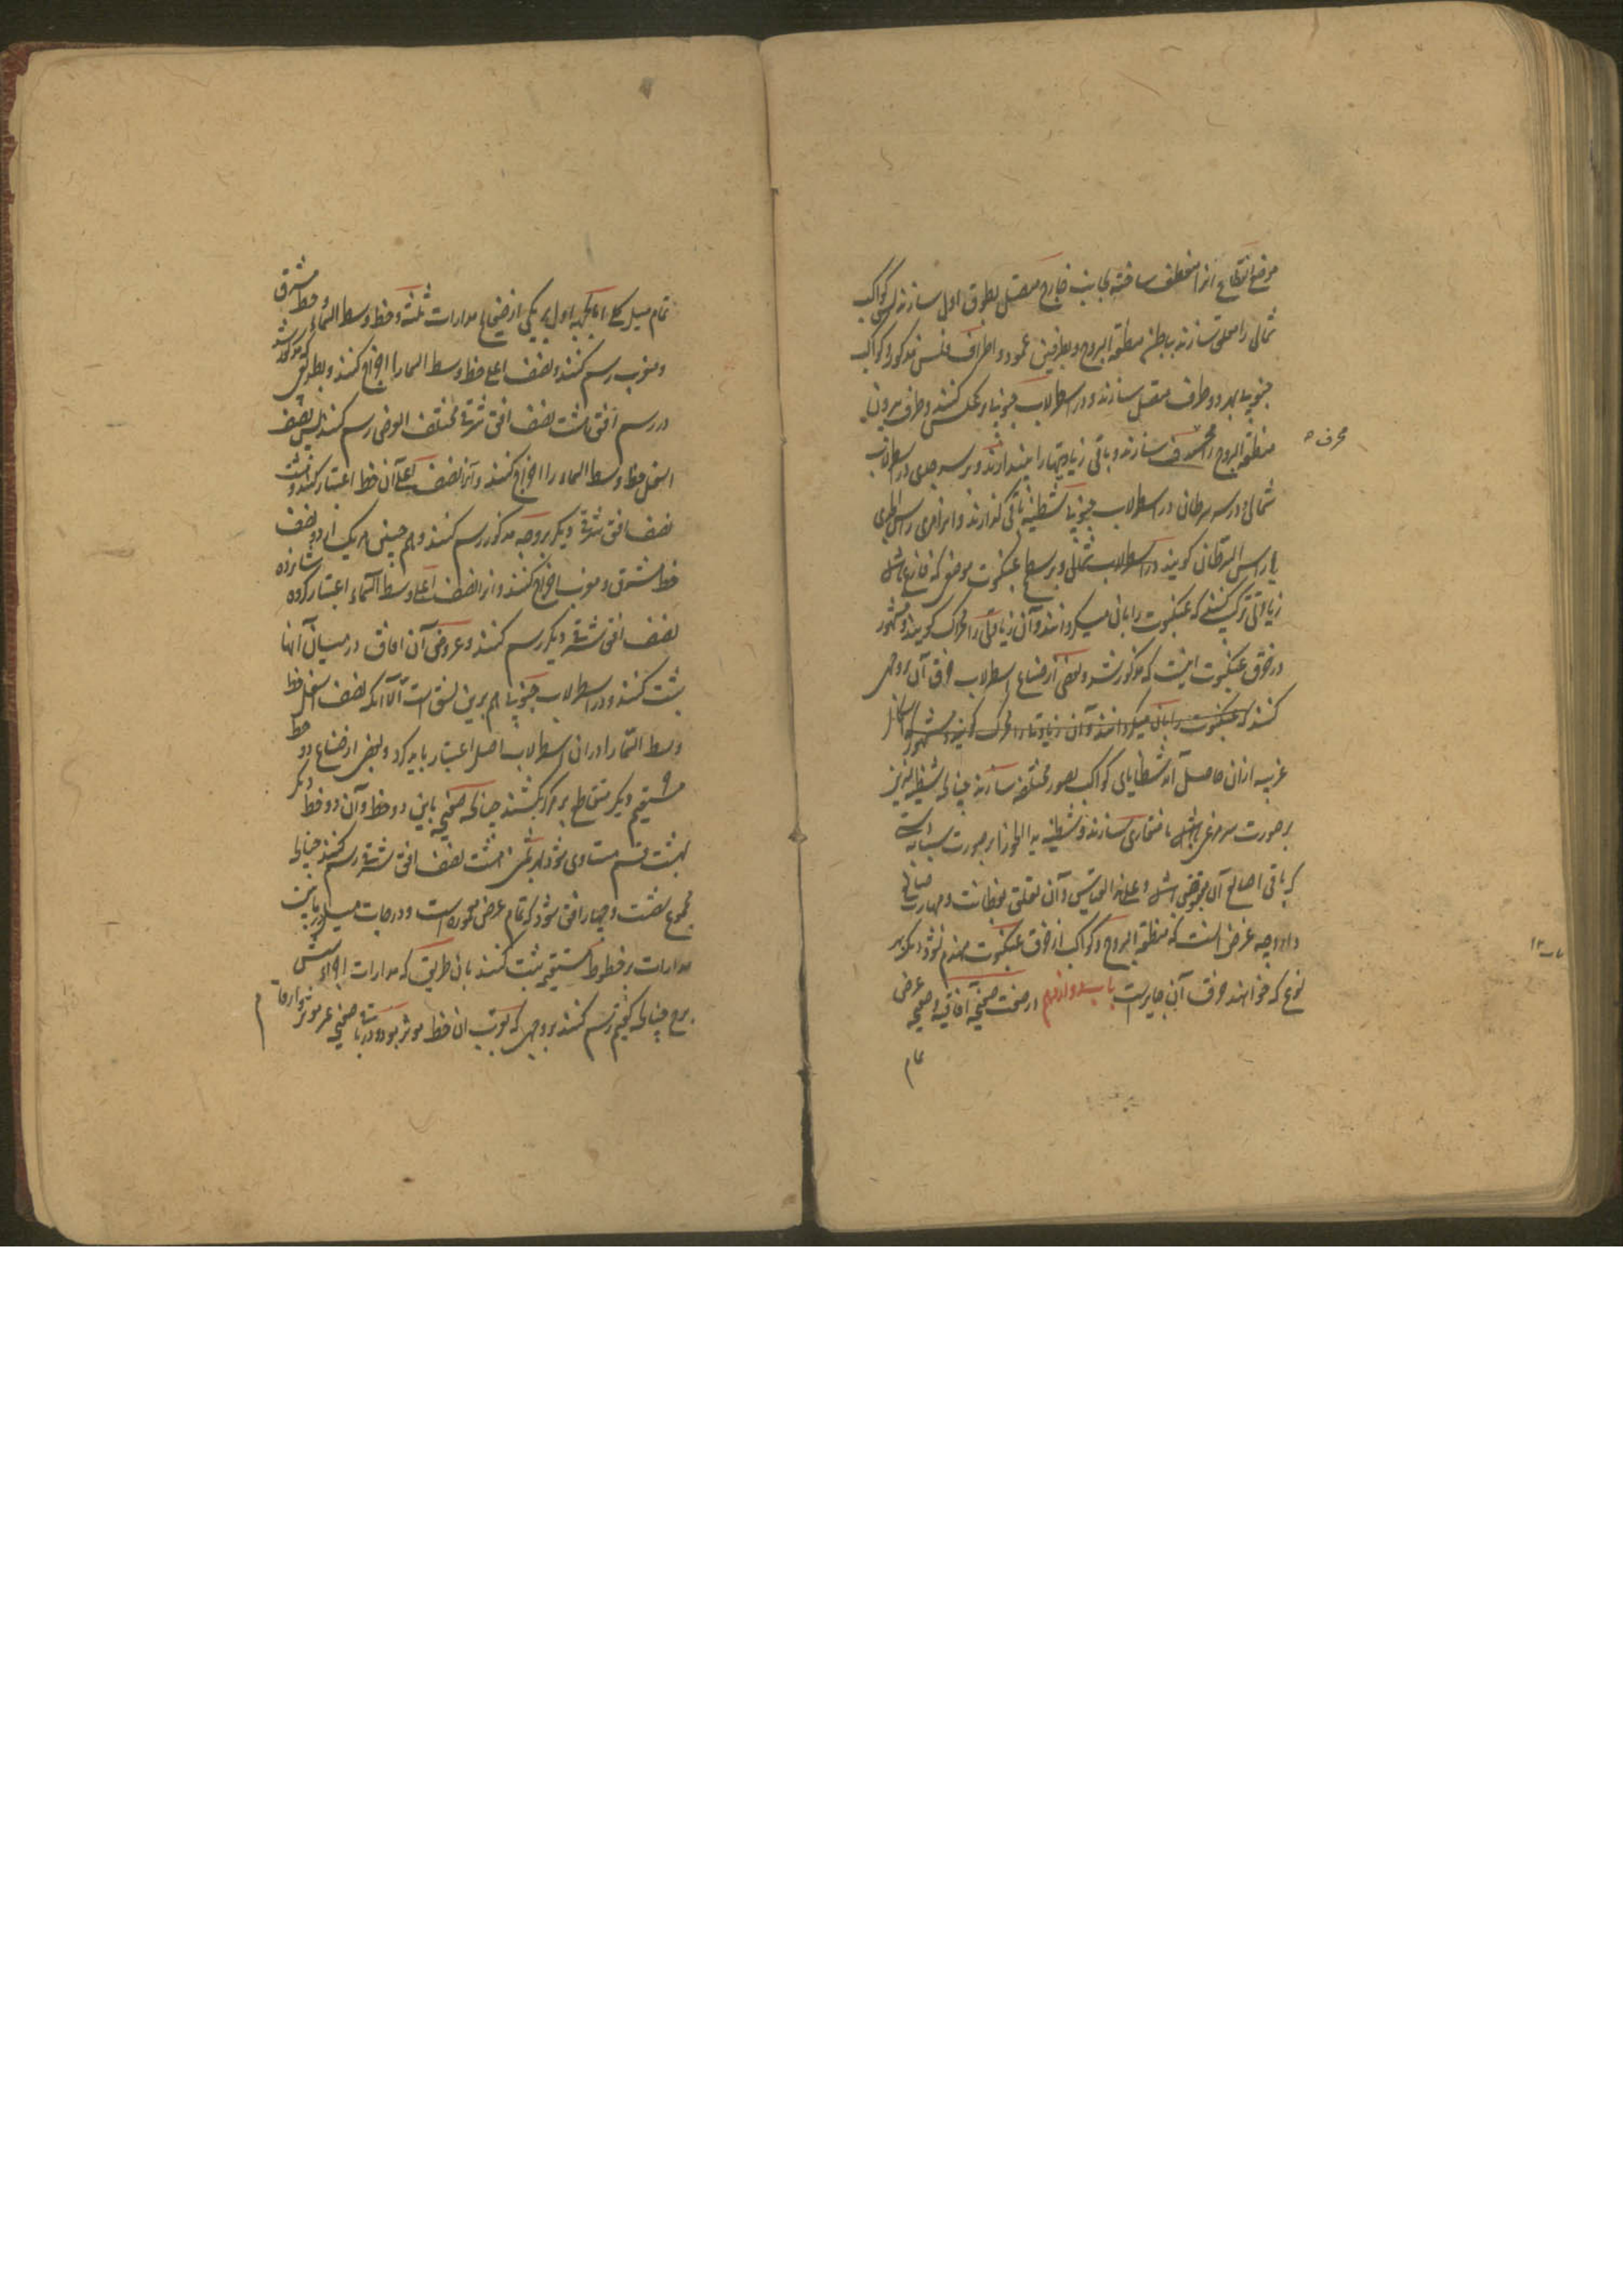 موضع تقاطع آنرا منعطف ساخته بجانب خارج متصل بطوق اول سازند پس کواکب
شمالی را معلق سازند بباطن منطقة البروج و بطرفین عمود و اطراف فلس مذکور و کواکب
جنوبی بهر دو طرف متصل سازند و در اسطرلاب جنوبی بر عکس کنند و طرف بیرونی
منطقة البروج را محرف سازند و باقی زیادتیها را بیندازند و بر سر جدی در اسطرلاب
محرف
شمالی و در سر سرطان در اسطرلاب جنوبی شظیه باقی گذارند و آنرا مری راس الجدی
یا راس السرطان گویند در اسطرلاب شمالی و بر سطح عنکبوت موضعی که فارغ باشد
زیادتی ترکیب کنند که عنکبوت را بآن میگردانند و آن زیادتی را محرک گویند و مشهور
در خرق عنکبوت اینست که مذکور شد و بعضی از صناع اسطرلاب خرق آن بر وجهی
کنند که عنکبوت را بآن میگردانند و آن زیادتی را محرک گویند و مشهور اشکال
غریبه از آن حاصل آید و شظایای کواکب بصور مختلفه سازند چنانچه شظیه
بر صورت سر مرغی باشد با منقاری سازند و شظیه ید الجوزا بر صورت سبابه
که باقی اصابع آن مقبوض باشد و علی هذا القیاس و آن تعلق بفطانت و مهارت صانع
دارد چه غرض آنست که منطقة البروج و کواکب از خرق عنکبوت منهدم نشود دیگر بهر
نوع که خواهند خرق آن جایزست باب دوازدهم در صنعت صفحه آفاقیه و صفحه عرض
تمام
تمام میل کلی اما بجهة اول بر یکی از صفایح مدارات ثلثه و خط وسط السماء و خط مشرق
و مغرب رسم کنند و نصف اعلی خط وسط السماء را اخراج کنند و بطریقی که مذکور شد
در رسم افق هشت نصف افق شرقی مختلف العرض رسم کنند پس نصف
اسفل خط وسط السماء را اخراج کنند و آنرا نصف اعلی آن خط اعتبار کنند و هشت
نصف افق شرقی دیگر بر وجه مذکور رسم کنند و هم چنین هر یک از دو نصف
خط مشرق و مغرب اخراج کنند و آنرا نصف اعلی وسط السماء اعتبار کرده شانزده
نصف افق شرقی دیگر رسم کنند و عروض آن آفاق در میان آنها
ثبت کنند و در اسطرلاب جنوبی هم برین نسق است الا آنکه نصف اسفل خط
وسط السماء را در آن اسطرلاب اصل اعتبار باید کرد و بعضی از صناع دو خط
مستقیم دیگر متقاطع بر مرکز بکشند چنانچه صفحه باین دو خط و آن دو خط دیگر
بهشت قسم متساوی شود و بر هر ثمن هشت نصف افق شرقی رسم کنند چنانچه
مجموع شصت و چهار افق شود که تمام عرض معموره است و درجات میل در ما بین
مدارات بر خطوط مستقیمه ثبت کنند بآن طریق که مدارات اجزاء شش
برج چنانچه گفتیم رسم کنند بر وجهی که بقرب آن خط